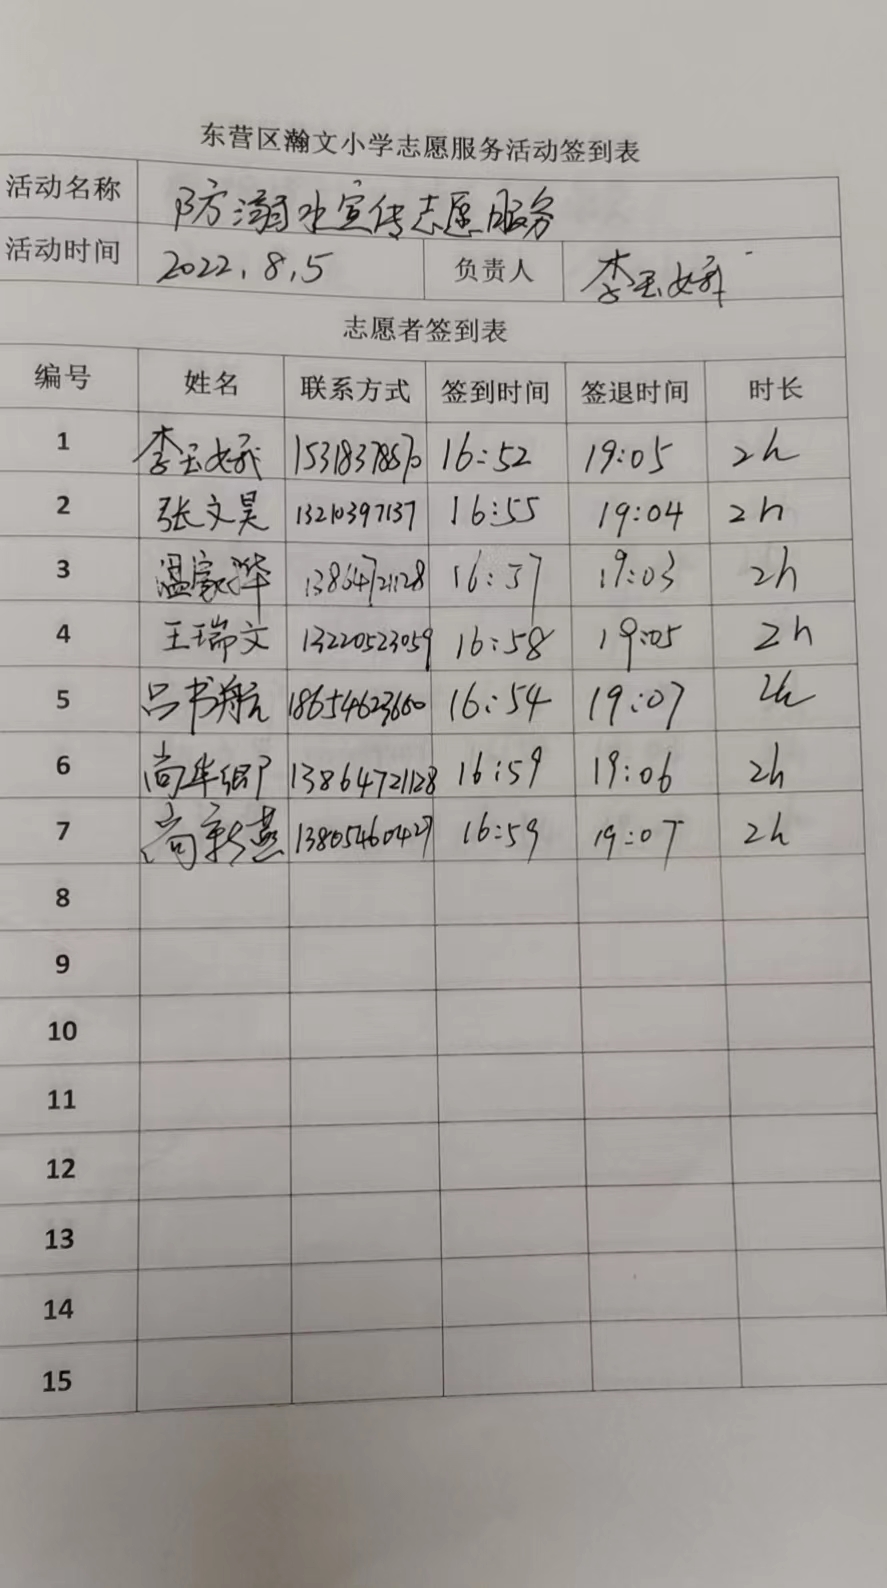 东营区瀚文小学志愿服务活动签到表
活动名称 防溺水宣传志愿服务
活动时间 2022.8.5 负责人 李玉
志愿者签到表
编号 姓名 联系方式 签到时间 签退时间 时长
1 李玉 16:52 19:05 2h
2 张文昊 13210397137 16:55 19:04 2h
3 温家骅 13864721128 16:57 19:03 2h
4 王瑞文 13220523059 16:58 19:05 2h
5 吕书航 18654623660 16:54 19:07 2h
6 尚 13864721128 16:59 19:06 2h
7 尚新燕 13805460427 16:59 19:07 2h
8
9
10
11
12
13
14
15